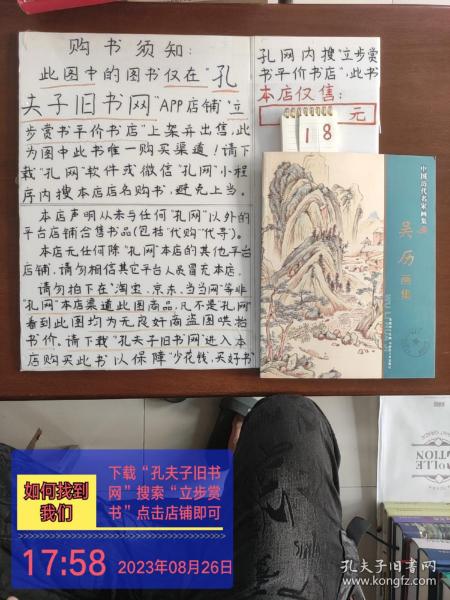 购书须知:
此图中的图书仅在“孔
夫子旧书网”APP店铺“立
步赏书平价书店”上架并出售,此
为图中此书唯一购买渠道!请下
载“孔网”软件或微信“孔网”小程
序内搜本店店名购书,避免上当。
本店声明从未与任何“孔网”以外的
平台店铺合售书品(包括“代购”“代寻)。
本店无任何除“孔网”本店的其他平台
店铺,请勿相信其它平台人员冒充本店。
请勿拍下在“淘宝、京东、当当网等非
“孔网”本店渠道此图商品,凡不是“孔网”
看到此图均为无良奸商盗图哄抬
书价。请下载“孔夫子旧书网”进入本
店购买此书以保障“少花钱,买好书”
孔网内搜“立步赏
书平价书店”,此书
本店仅售:
元
18
中国历代名家画集
吴历画集
WU LI
如何找到
我们
下载“孔夫子旧书
网”搜索“立步赏
书”点击店铺即可
17:58 2023年08月26日
孔夫子旧书网
www.kongfz.com